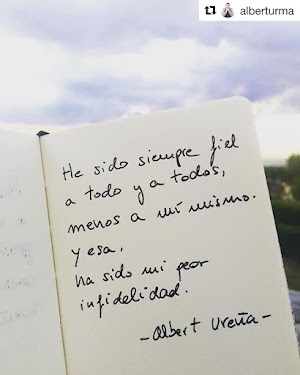 alberturma
He sido siempre fiel
a todo y a todos,
menos a mí mismo.
y esa,
ha sido mi peor
infidelidad.
-Albert Ureña-